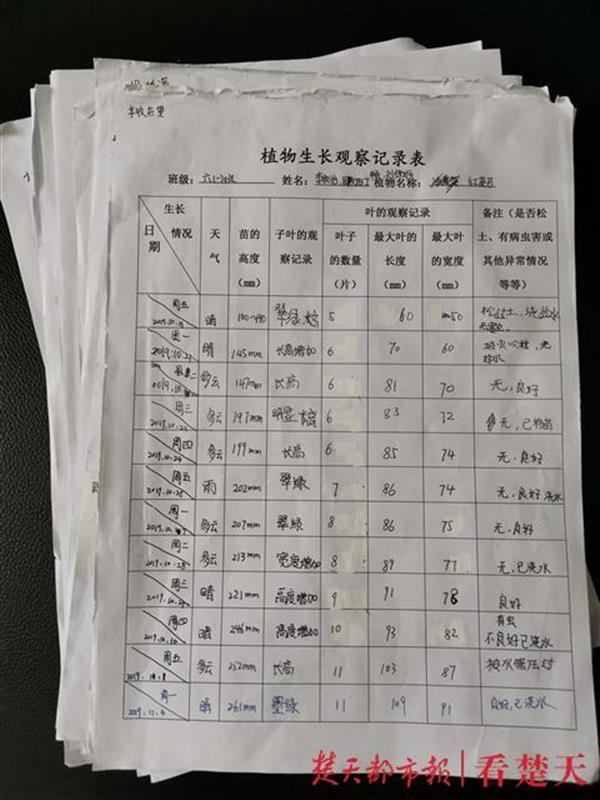 丰收在望
植物生长观察记录表
班级： 姓名： 植物名称： 红菜苔
生长情况 日期 天气 苗的高度(mm) 子叶的观察记录 叶的观察记录 叶子的数量(片) 最大叶的长度(mm) 最大叶的宽度(mm) 备注（是否松土、有病虫害或其他异常情况等等）
周五 晴 翠绿 5 60 50
周一 晴 145mm 长高增加 6 70 60
多云 147mm 长高 6 81 70 无，良好
周三 多云 197mm 6 83 72
周四 2019.10.24 多云 199mm 长高 6 85 74 无，良好
周五 2019.10.25 雨 202mm 翠绿 7 86 74 无，良好 浇水
周一 多云 207mm 翠绿 8 86 75 无，良好
周二 多云 213mm 宽度增加 8 89 77 无，已浇水
周三 晴 221mm 高度增加 9 91 78 良好
周四 晴 246mm 高度增加 10 93 82 有虫 不良好已浇水
周五 多云 252mm 长高 11 103 87
周一 2019.11.4 晴 261mm 墨绿 11 109 91 良好，已浇水
楚天都市报 看楚天